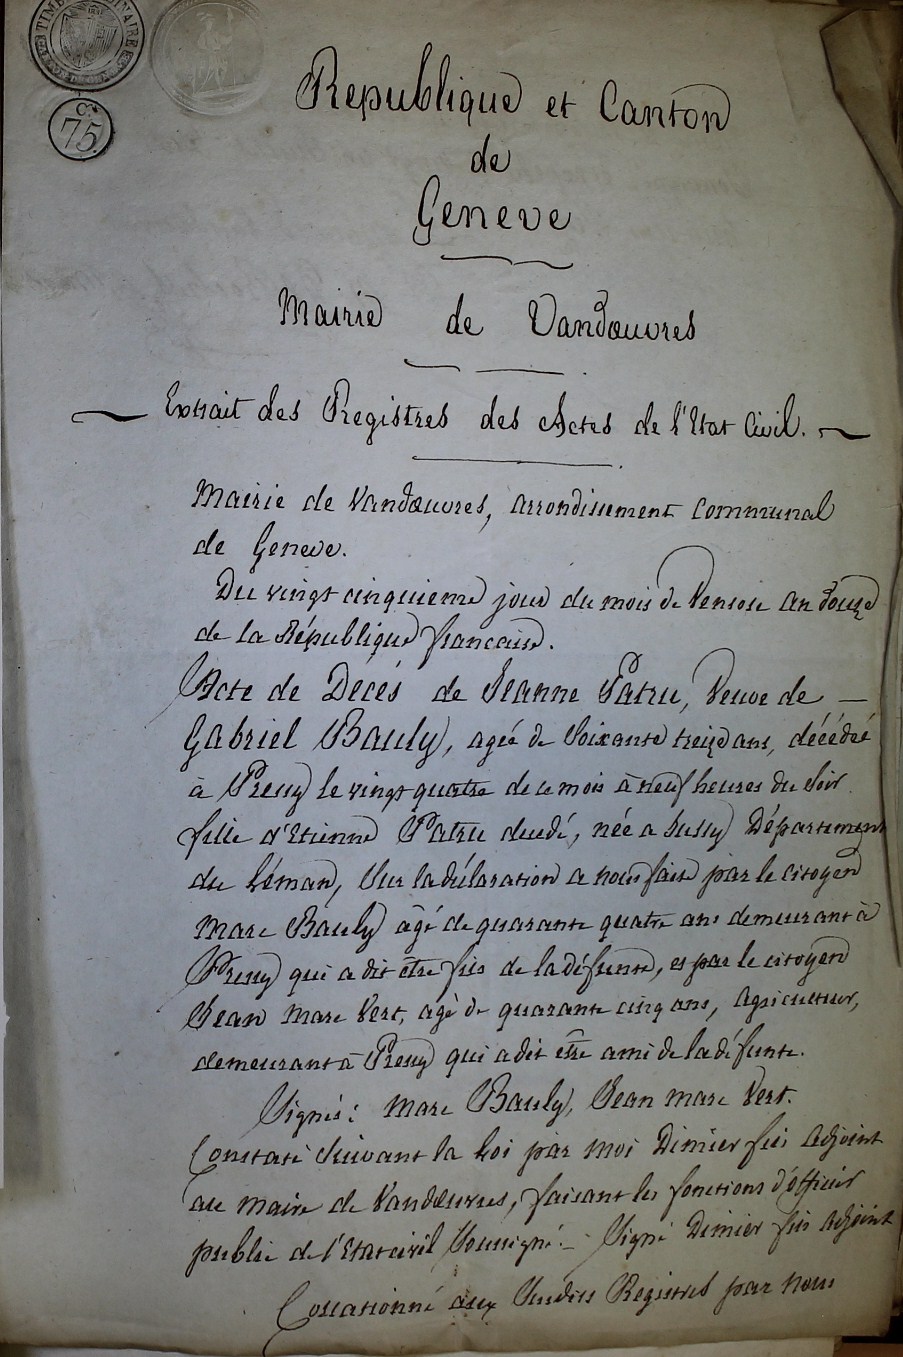 C.
75.
Republique et Canton
de
Geneve
Mairie de Vandœuvres
Extrait des Registres des Actes de l'Etat Civil.
Mairie de Vandœuvres, arrondissement Communal
de Geneve.
Du vingt cinquieme jour du mois de Ventose an douze
de la République francaise.
Acte de Décés de Jeanne Patru, Veuve de
Gabriel Bauly, agée de Soixante treize ans, décédée
à Pressy le vingt quatre de ce mois à neuf heures du Soir
fille d'Etienne Patru, née a Jussy Département
du Léman, Sur la déclaration a nous fait par le citoyen
Marc Bauly âgé de quarante quatre ans demeurant à
Pressy qui a dit être fils de la défunte, et par le citoyen
Jean Marc Vert, agé de quarante cinq ans, agriculteur,
demeurant à Pressy qui a dit être ami de la défunte.
Signés: Marc Bauly, Jean Marc Vert.
Constaté Suivant la Loi par moi Dimier fils adjoint
au maire de Vandœuvres, faisant les fonctions d'officier
public de l'Etat civil Soussigné. Signé Dimier fils adjoint
Collationné aux Susdits Registres par nous